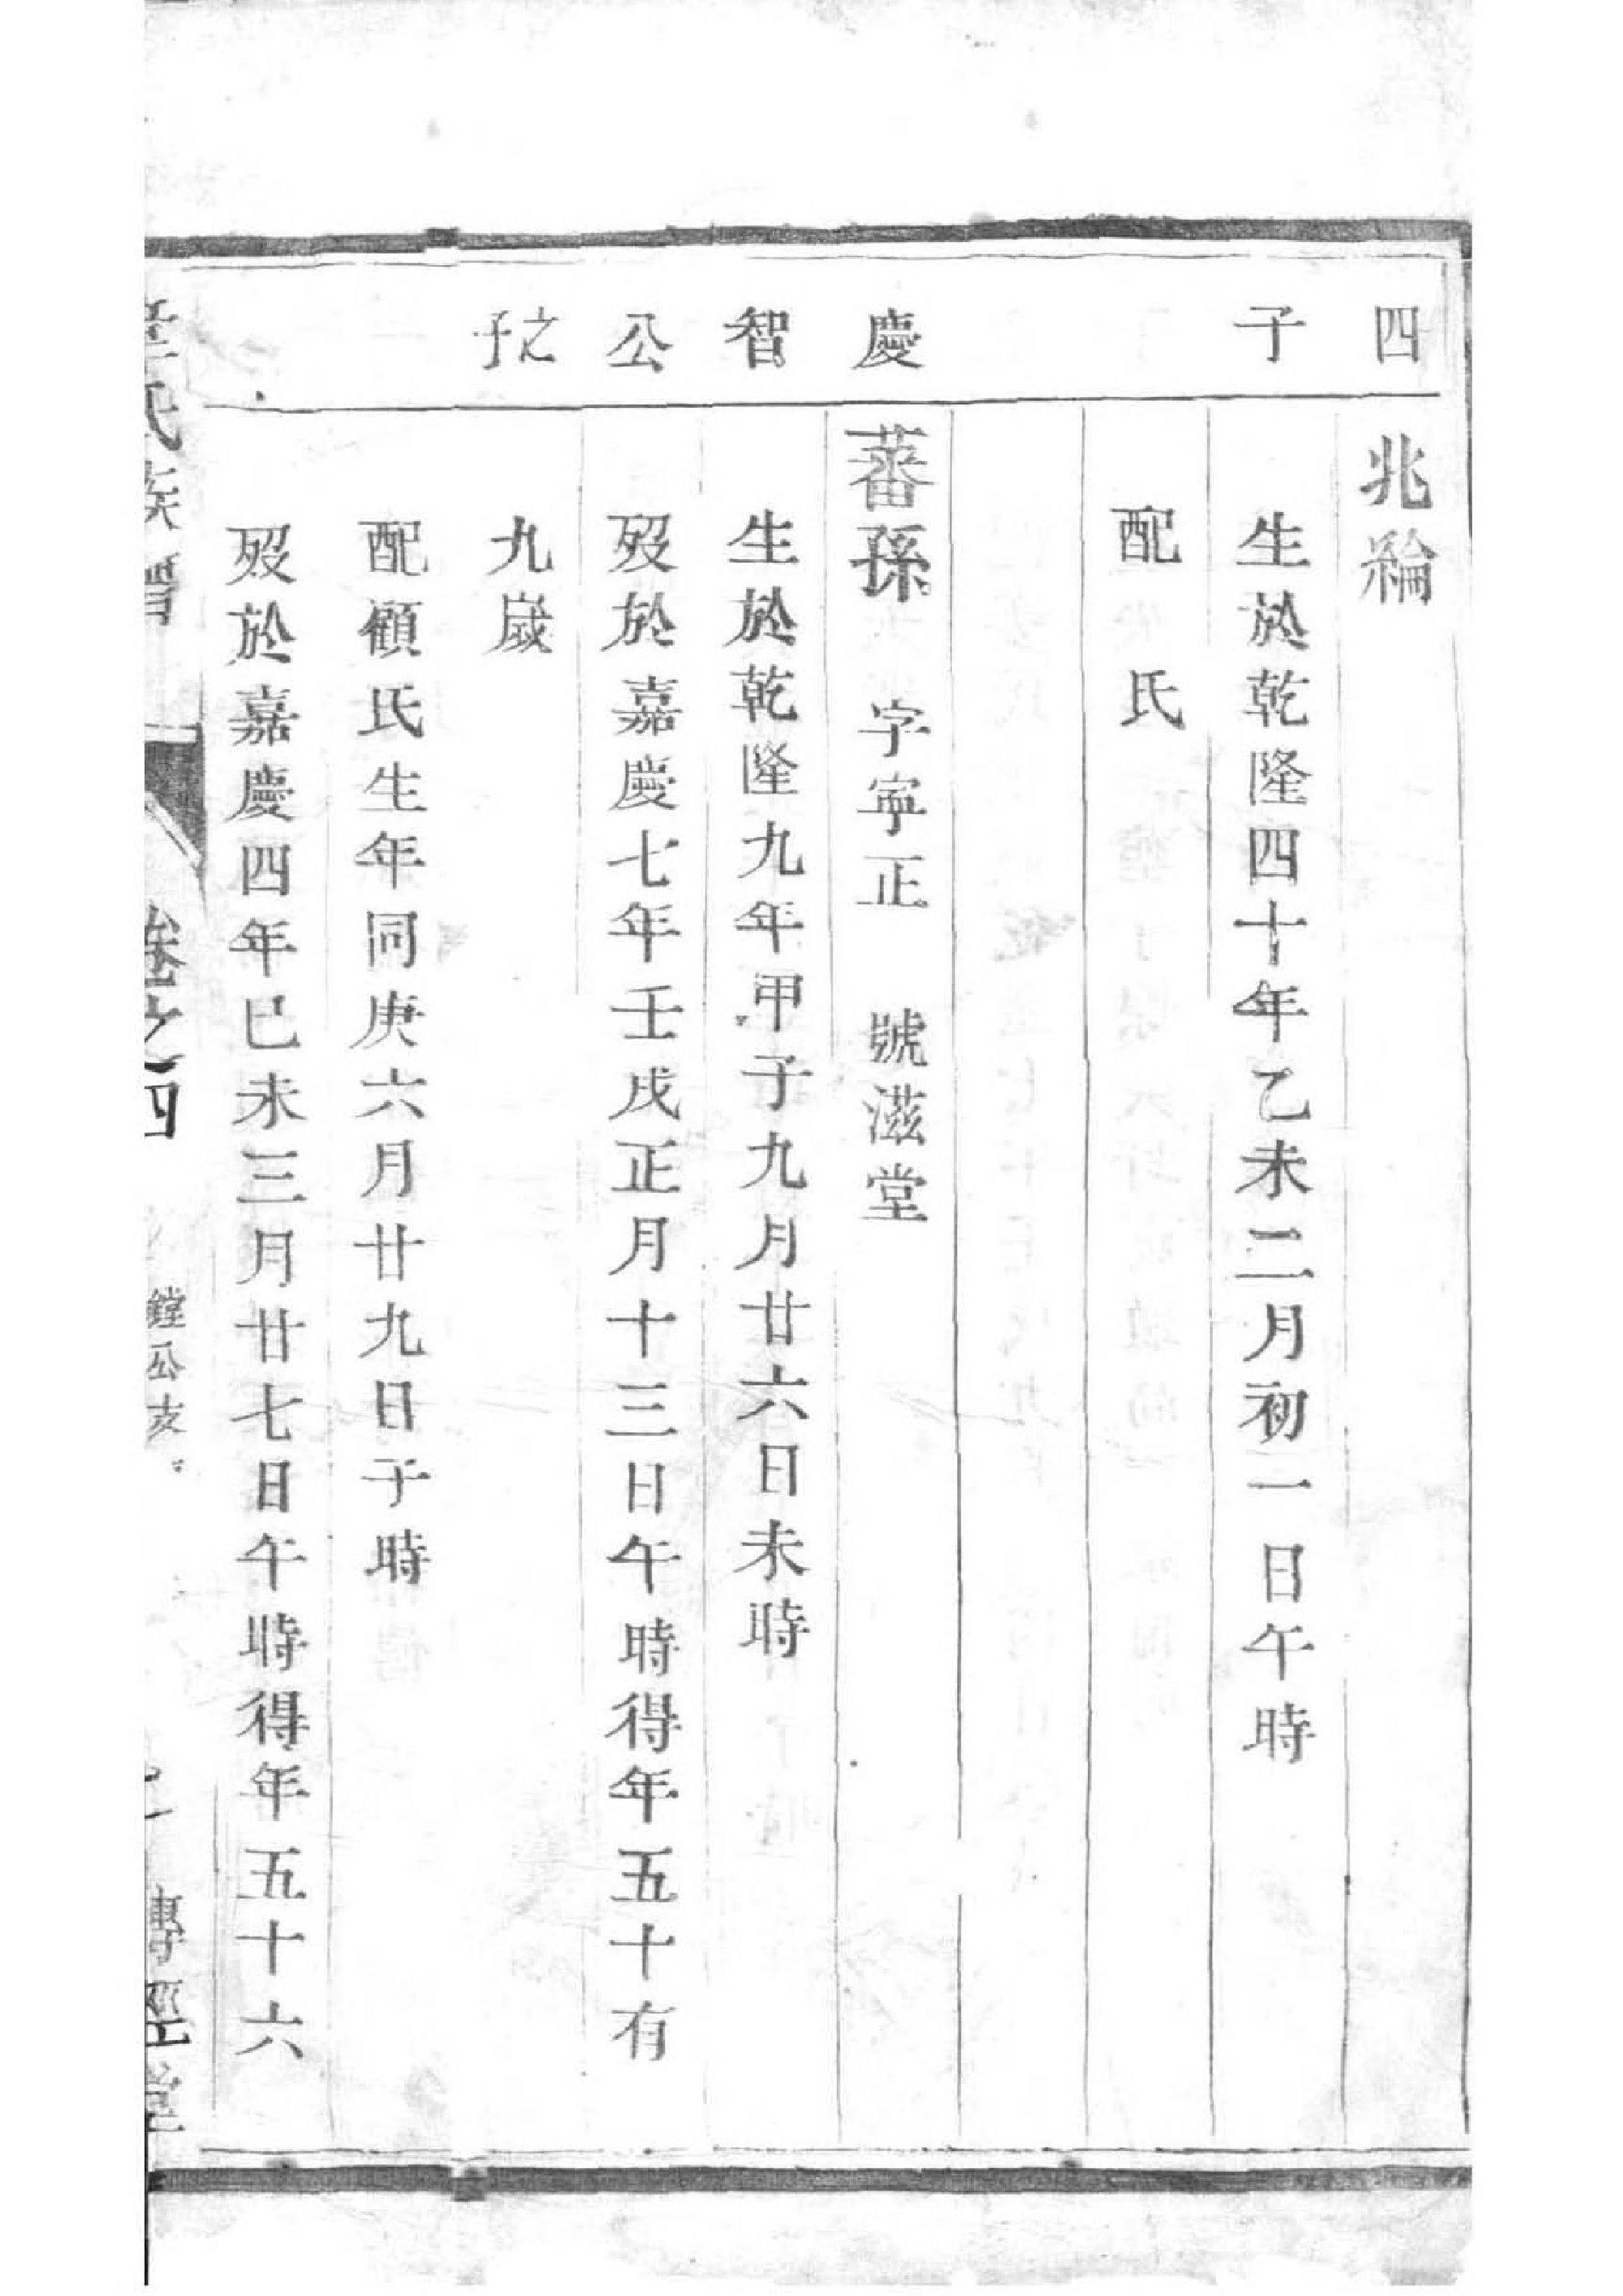 四
子
慶
智
公
之子
兆綸
生於乾隆四十年乙未二月初一日午時
配 氏
蕃孫 字寧正 號滋堂
生於乾隆九年甲子九月廿六日未時
歿於嘉慶七年壬戌正月十三日午時得年五十有
九歲
配顧氏生年同庚六月廿九日子時
歿於嘉慶四年巳未三月廿七日午時得年五十六
氏族譜 卷之四 鏜公支 傳經堂